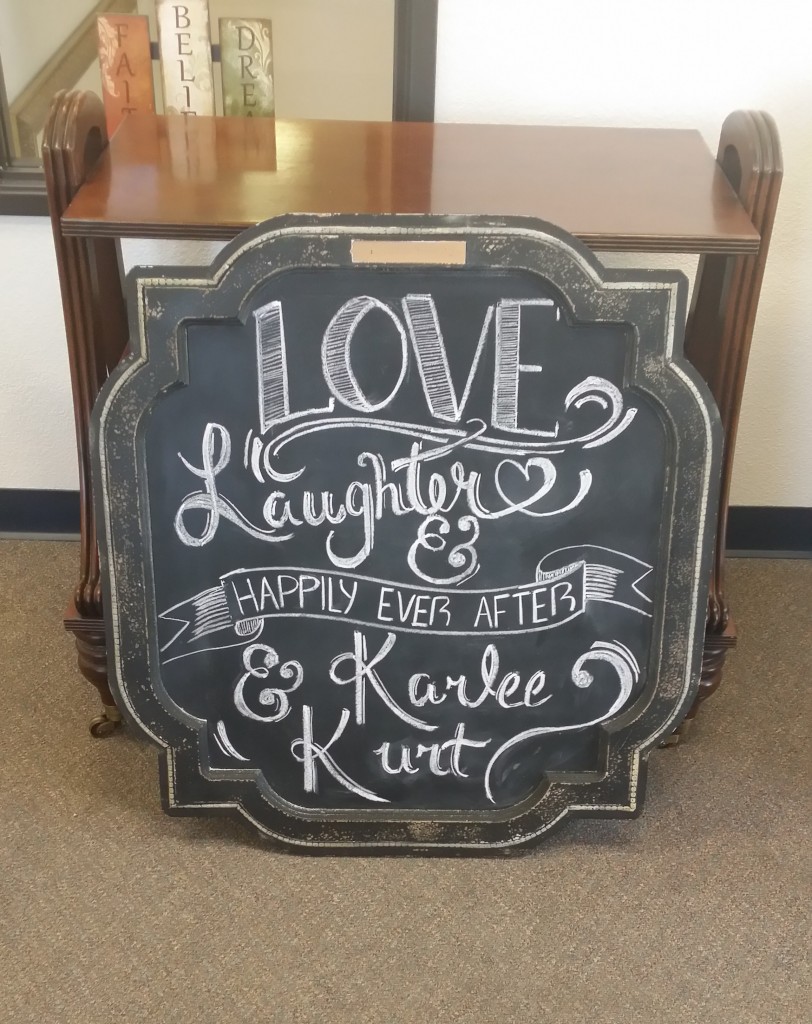 FAIT
BELIE
DREA
LOVE
Laughter
&
HAPPILY EVER AFTER
& Karlee
Kurt